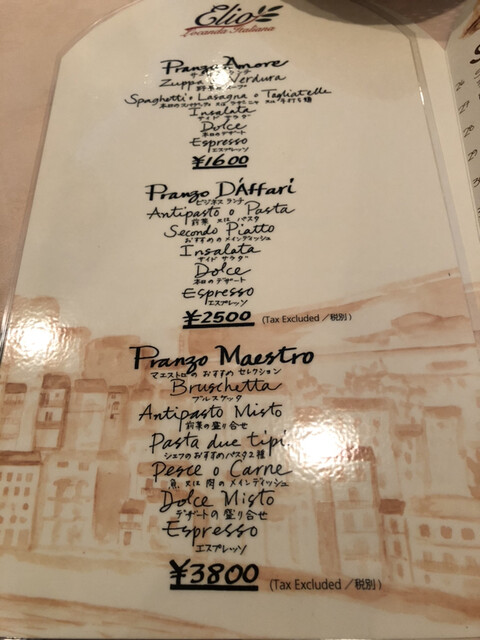 Elio
Locanda Italiana
Pranzo Amore
Zuppa Verdura
Spaghetti o Lasagna o Tagliatelle
Insalata
サイド サラダ
Dolce
本日のデザート
Espresso
エスプレッソ
¥1600
Pranzo D'Affari
ビジネス ランチ
Antipasto o Pasta
前菜 又は パスタ
Secondo Piatto
おすすめのメインディッシュ
Insalata
サイド サラダ
Dolce
本日のデザート
Espresso
エスプレッソ
¥2500 (Tax Excluded／税別)
Pranzo Maestro
マエストローの おすすめ セレクション
Bruschetta
ブルスケッタ
Antipasto Misto
前菜の盛り合せ
Pasta due tipi
シェフのおすすめパスタ2種
Pesce o Carne
魚 又は 肉の メインディッシュ
Dolce Misto
デザートの盛り合せ
Espresso
エスプレッソ
¥3800 (Tax Excluded／税別)